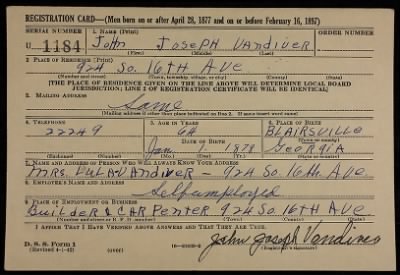 REGISTRATION CARD—(Men born on or after April 28, 1877 and on or before February 16, 1897)
SERIAL NUMBER 1. NAME (Print) ORDER NUMBER
U 1184 JOHN JOSEPH VANDIVER
(First) (Middle) (Last)
2. PLACE OF RESIDENCE (Print)
924 So. 16TH AVE
(Number and street) (Town, township, village, or city) (County) (State)
[THE PLACE OF RESIDENCE GIVEN ON THE LINE ABOVE WILL DETERMINE LOCAL BOARD
JURISDICTION; LINE 2 OF REGISTRATION CERTIFICATE WILL BE IDENTICAL]
3. MAILING ADDRESS
Same
[Mailing address if other than place indicated on line 2. If same insert word same]
4. TELEPHONE 5. AGE IN YEARS 6. PLACE OF BIRTH
22249 64 BLAIRSVILLE
DATE OF BIRTH (Town or county)
Jan 1. 1878 GEORGIA
(Exchange) (Number) (Mo.) (Day) (Yr.) (State or country)
7. NAME AND ADDRESS OF PERSON WHO WILL ALWAYS KNOW YOUR ADDRESS
MRS. LULA VANDIVER — 924 So. 16th AVE.
8. EMPLOYER'S NAME AND ADDRESS
Self employed
9. PLACE OF EMPLOYMENT OR BUSINESS
Builder & CARPenter 924 So. 16TH AVE
(Number and street or R. F. D. number) (Town) (County) (State)
I AFFIRM THAT I HAVE VERIFIED ABOVE ANSWERS AND THAT THEY ARE TRUE.
D. S. S. Form 1
(Revised 4-1-42) (over) John Joseph Vandiver
(Registrant's signature)